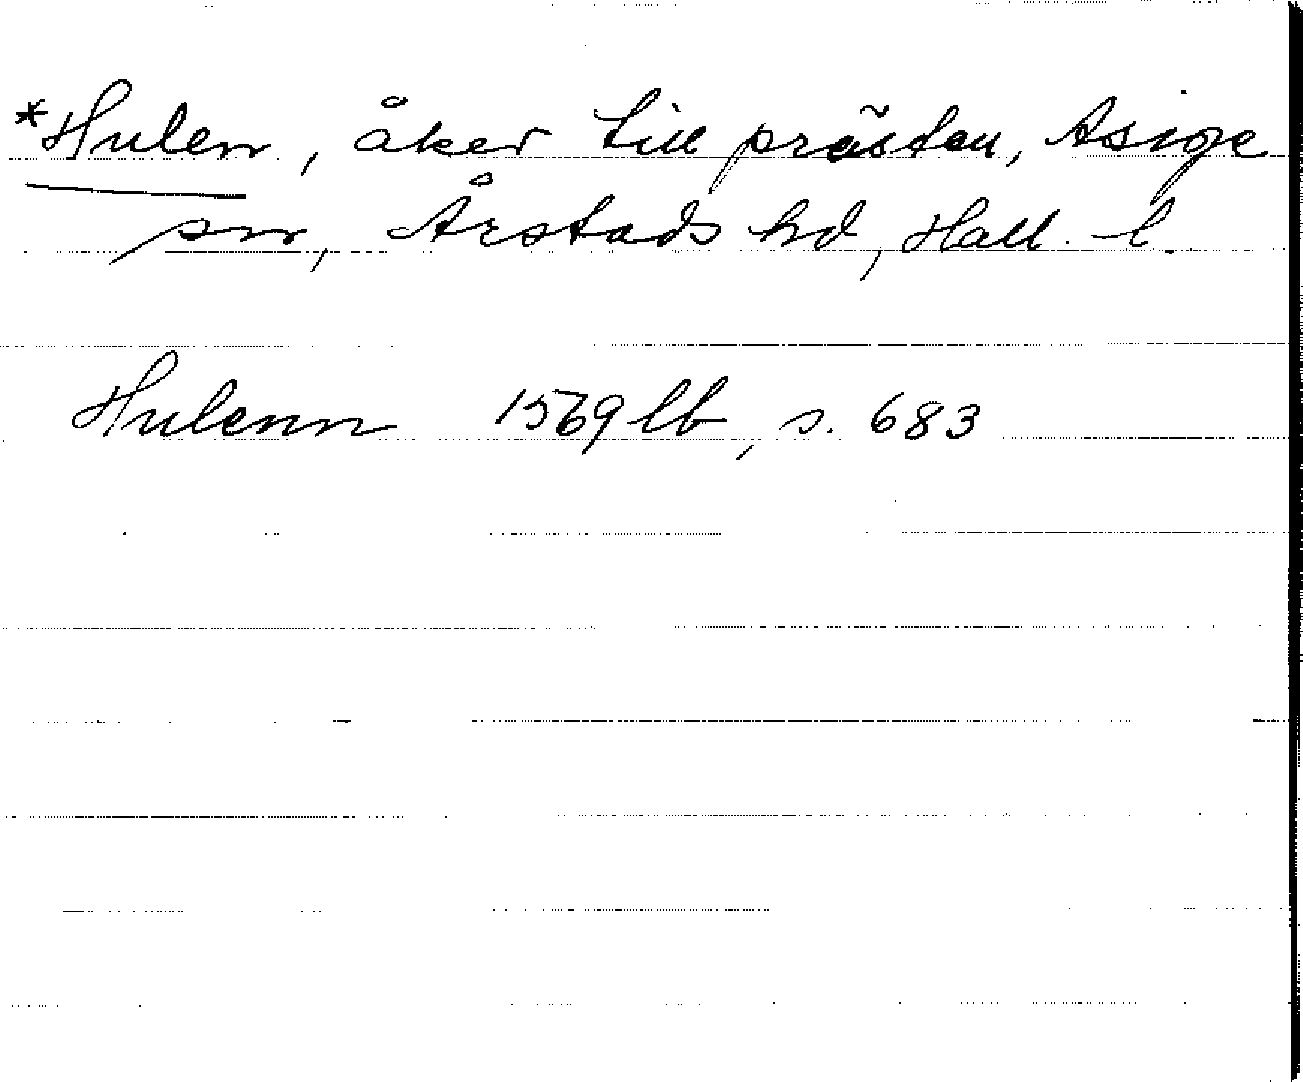 *Hulen, åker till prästen, Asige
sn, Årstads hd, Hall. l.
Hulenn 1569 lb, s. 683